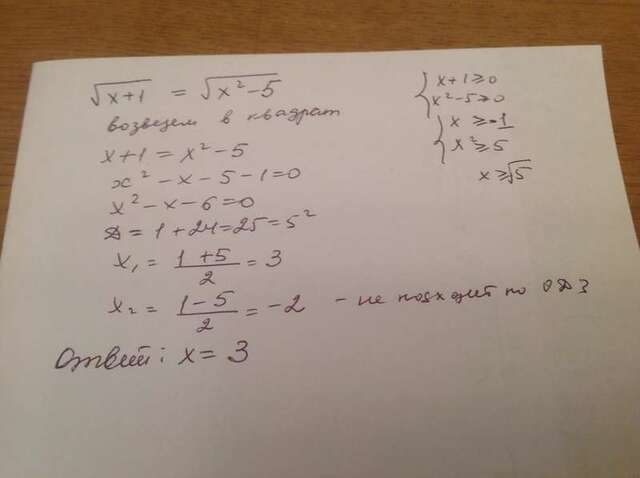 √x+1 = √x²-5
возведем в квадрат
x+1 = x²-5
x² - x - 5 - 1 = 0
x² - x - 6 = 0
D = 1 + 24 = 25 = 5²
x₁ = (1+5)/2 = 3
x₂ = (1-5)/2 = -2 - не подходит по ОДЗ
Ответ: x = 3
{x+1≥0
x²-5≥0
{x ≥ -1
x² ≥ 5
x ≥ √5